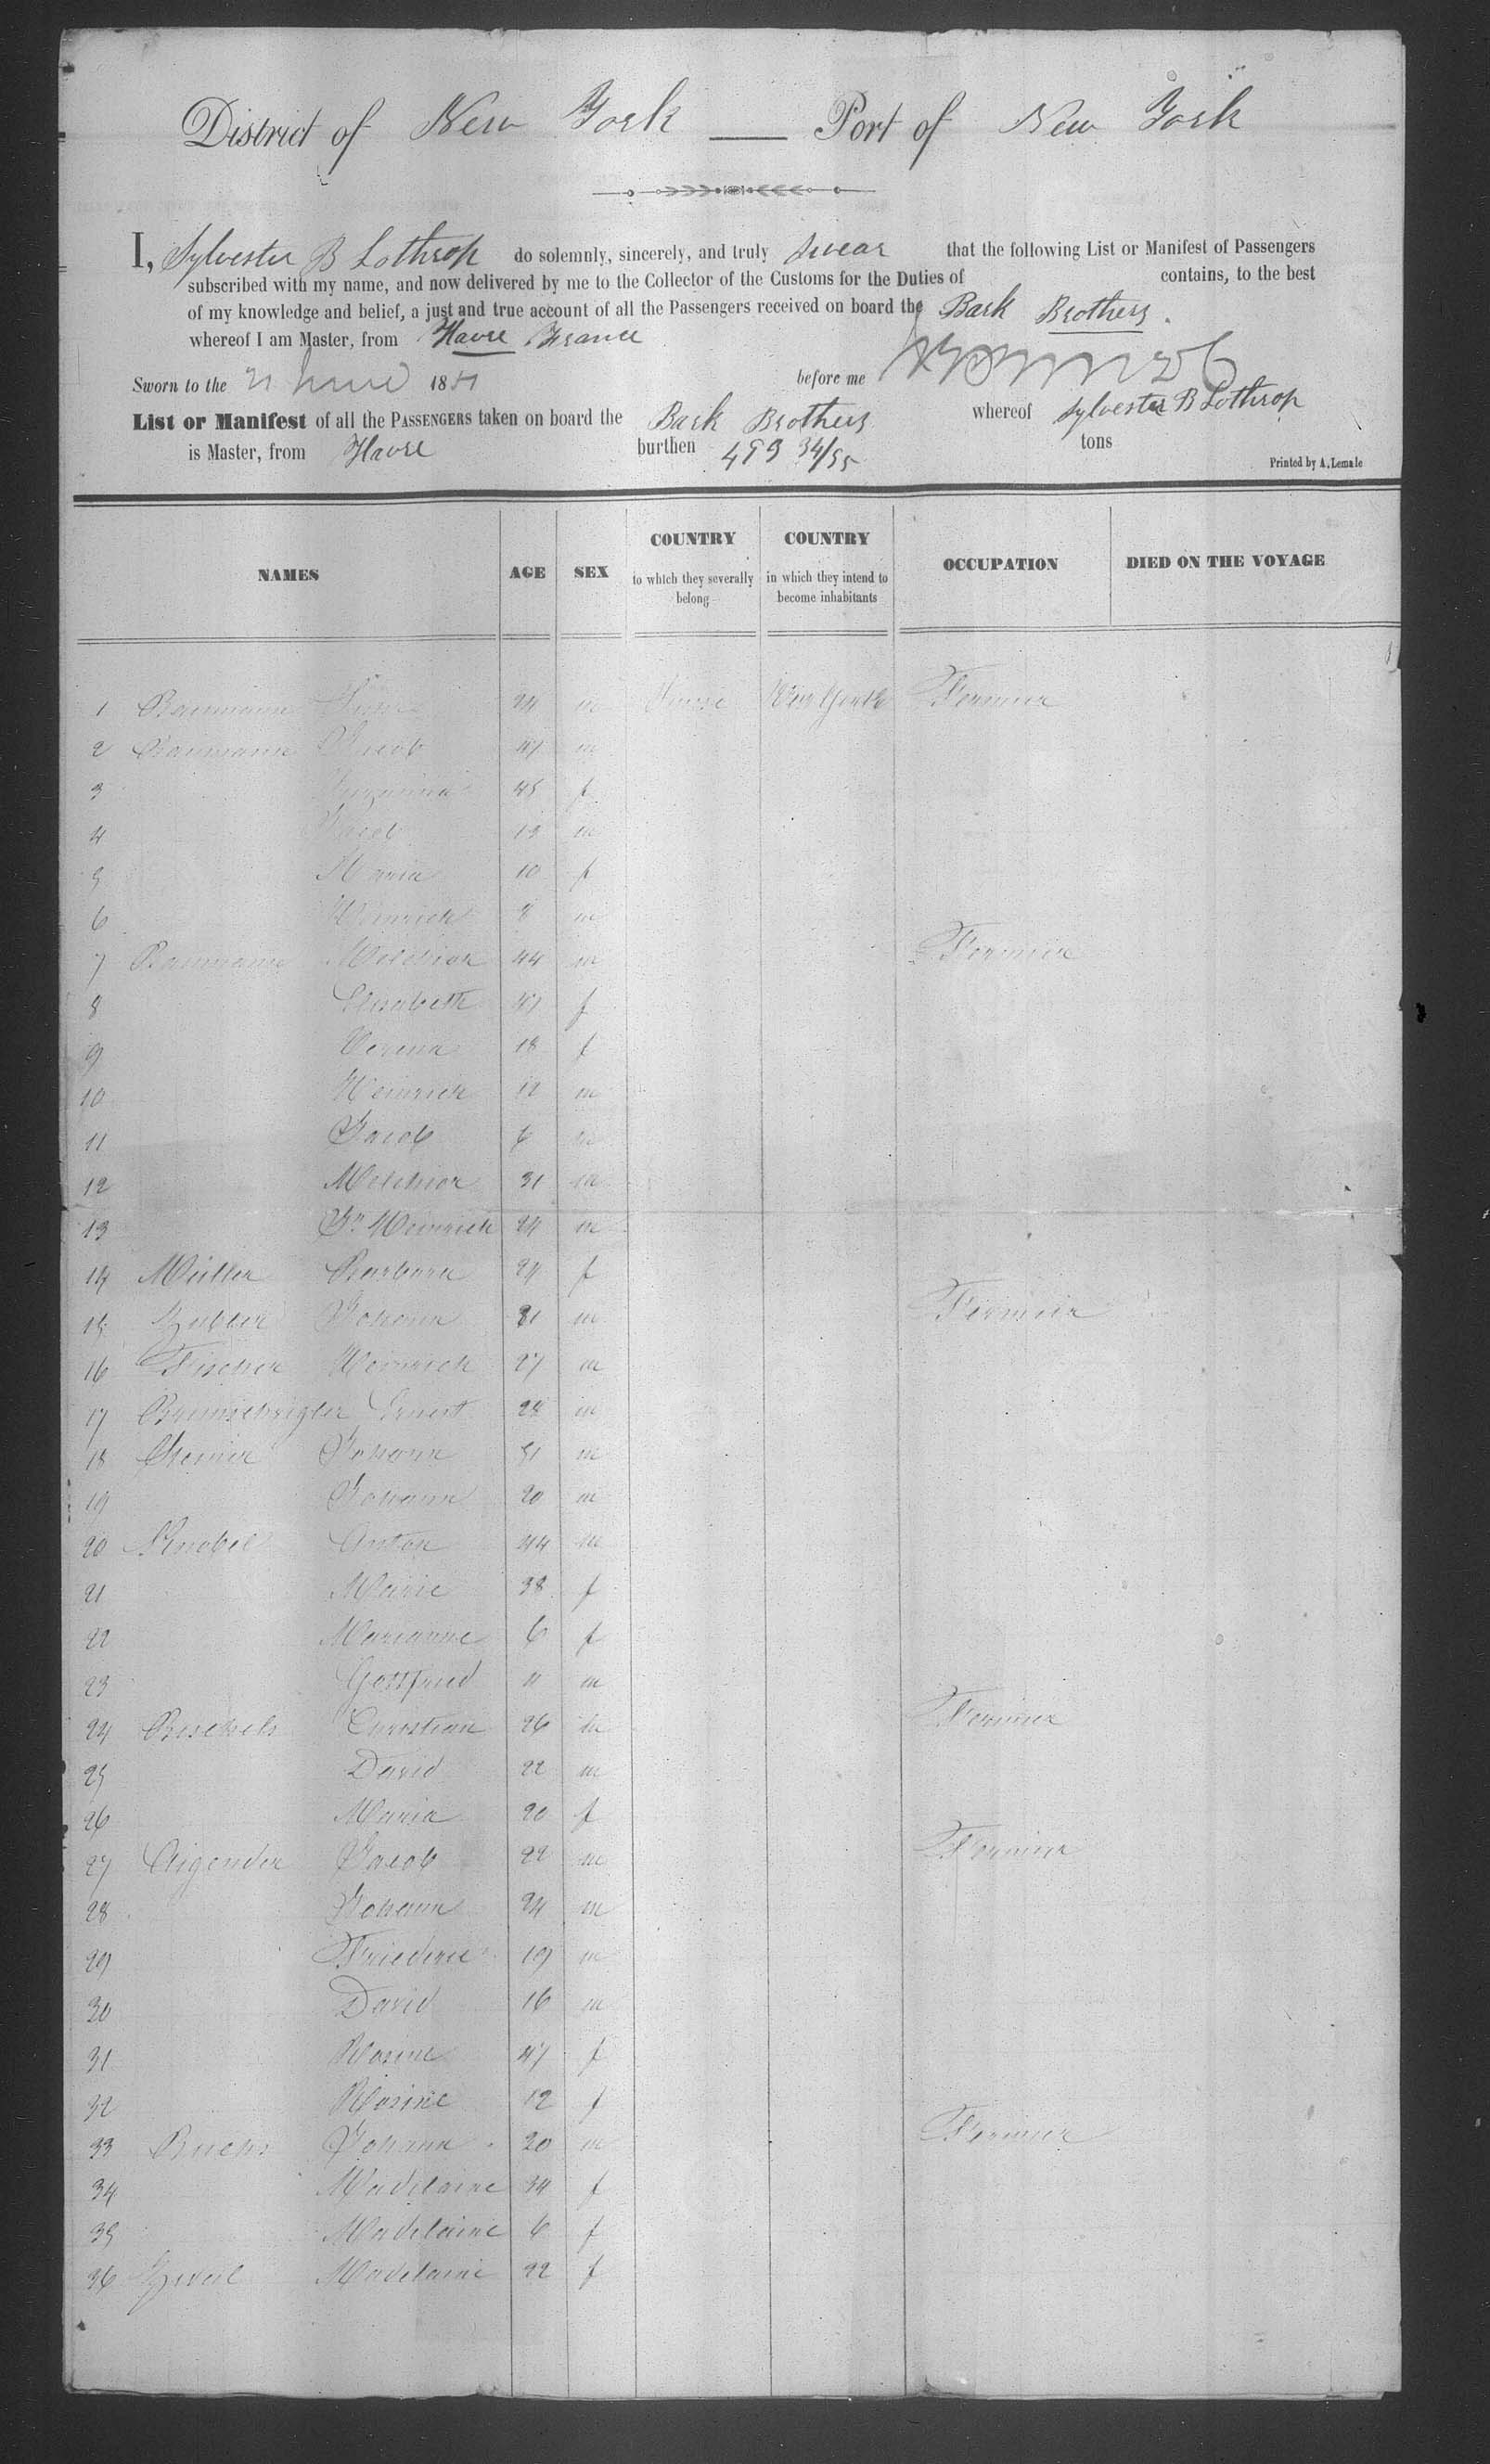 District of New York — Port of New York
I, Sylvester B Lothrop do solemnly, sincerely, and truly swear that the following List or Manifest of Passengers
subscribed with my name, and now delivered by me to the Collector of the Customs for the Duties of contains, to the best
of my knowledge and belief, a just and true account of all the Passengers received on board the Bark Brothers.
whereof I am Master, from Havre France
Sworn to the 21 June 1851 before me
List or Manifest of all the PASSENGERS taken on board the Bark Brothers whereof Sylvester B Lothrop
is Master, from Havre burthen 499 34/95 tons
Printed by A. Lemale
NAMES AGE SEX COUNTRY to which they severally belong COUNTRY in which they intend to become inhabitants OCCUPATION DIED ON THE VOYAGE
1 Baumann 24 m Suisse New York Fermier
2 Baumann Jacob 47 m
3 45 f
4 Jacob 13 m
5 Maria 10 f
6 Heinrich 8 m
7 Baumann Melchior 44 m Fermier
8 Elisabeth 47 f
9 Verena 18 f
10 Heinrich 11 m
11 Jacob 6 m
12 Melchior 31 m
13 Jn Heinrich 24 m
14 Müller Barbara 24 f
15 Zubler Johann 31 m Fermier
16 Fischer Heinrich 27 m
17 Ernest 28 m
18 Johann 51 m
19 Johann 20 m
20 Knobel Anton 44 m
21 Marie 38 f
22 Marianne 6 f
23 Gottfried 11 m
24 Christian 26 m Fermier
25 David 22 m
26 Maria 20 f
27 Jacob 22 m Fermier
28 Johann 24 m
29 Frederic 19 m
30 David 16 m
31 Rosine 47 f
32 Rosine 12 f
33 Buchs Johann 30 m Fermier
34 Madelaine 34 f
35 Madelaine 6 f
36 Madelaine 22 f